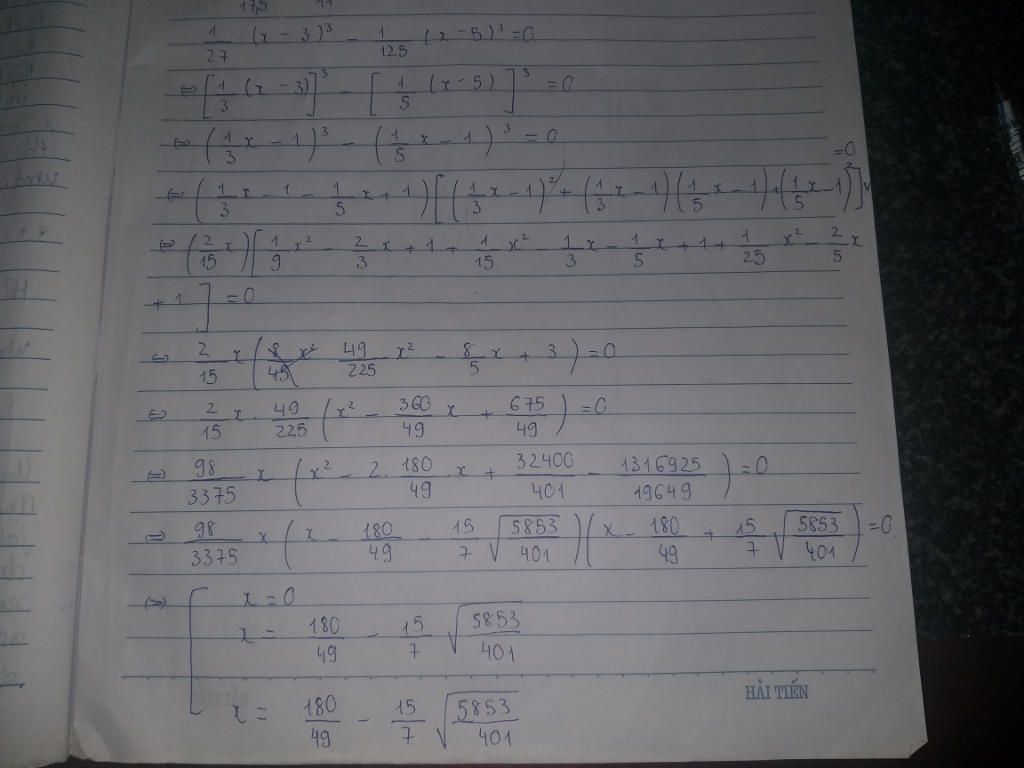 17,5 11
1/27 (x - 3)³ - 1/125 (x - 5)³ = 0
⇔ [1/3 (x - 3)]³ - [1/5 (x - 5)]³ = 0
⇔ (1/3 x - 1)³ - (1/5 x - 1)³ = 0
⇔ (1/3 x - 1 - 1/5 x + 1)[(1/3 x - 1)² + (1/3 x - 1)(1/5 x - 1) + (1/5 x - 1)²] = 0
⇔ (2/15 x)[1/9 x² - 2/3 x + 1 + 1/15 x² - 1/3 x - 1/5 x + 1 + 1/25 x² - 2/5 x
+ 1] = 0
⇔ 2/15 x (49/225 x² - 8/5 x + 3) = 0
⇔ 2/15 x . 49/225 (x² - 360/49 x + 675/49) = 0
⇔ 98/3375 x (x² - 2. 180/49 x + 32400/401 - 1316925/19649) = 0
⇔ 98/3375 x (x - 180/49 - 15/7 √(5853/401))(x - 180/49 + 15/7 √(5853/401)) = 0
⇔ [ x = 0
x = 180/49 - 15/7 √(5853/401)
x = 180/49 - 15/7 √(5853/401)
HẢI TIẾN